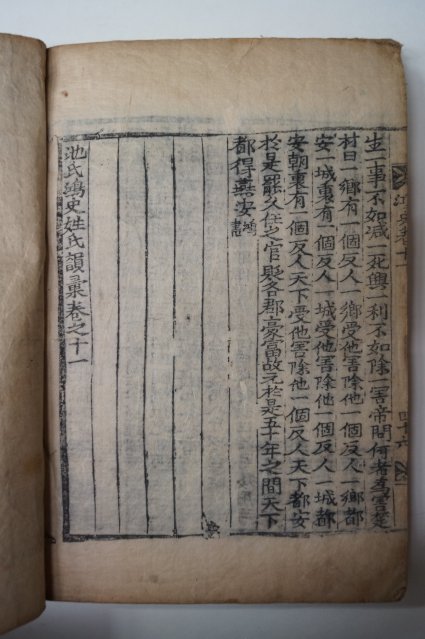 史卷十一
四十六
生一事不如减一死興一利不如除一害帝問何者為害楚
材曰一鄉有一個反人一鄉受他害除他一個反人一鄉都
安一城裏有一個反人一城受他害除他一個反人一城都
安朝裏有一個反人天下受他害除他一個反人天下都安
於是罷久任之官貶各郡豪富故元於是五十年之間天下
都得無安鴻書
池氏鴻史姓氏韻彙卷之十一